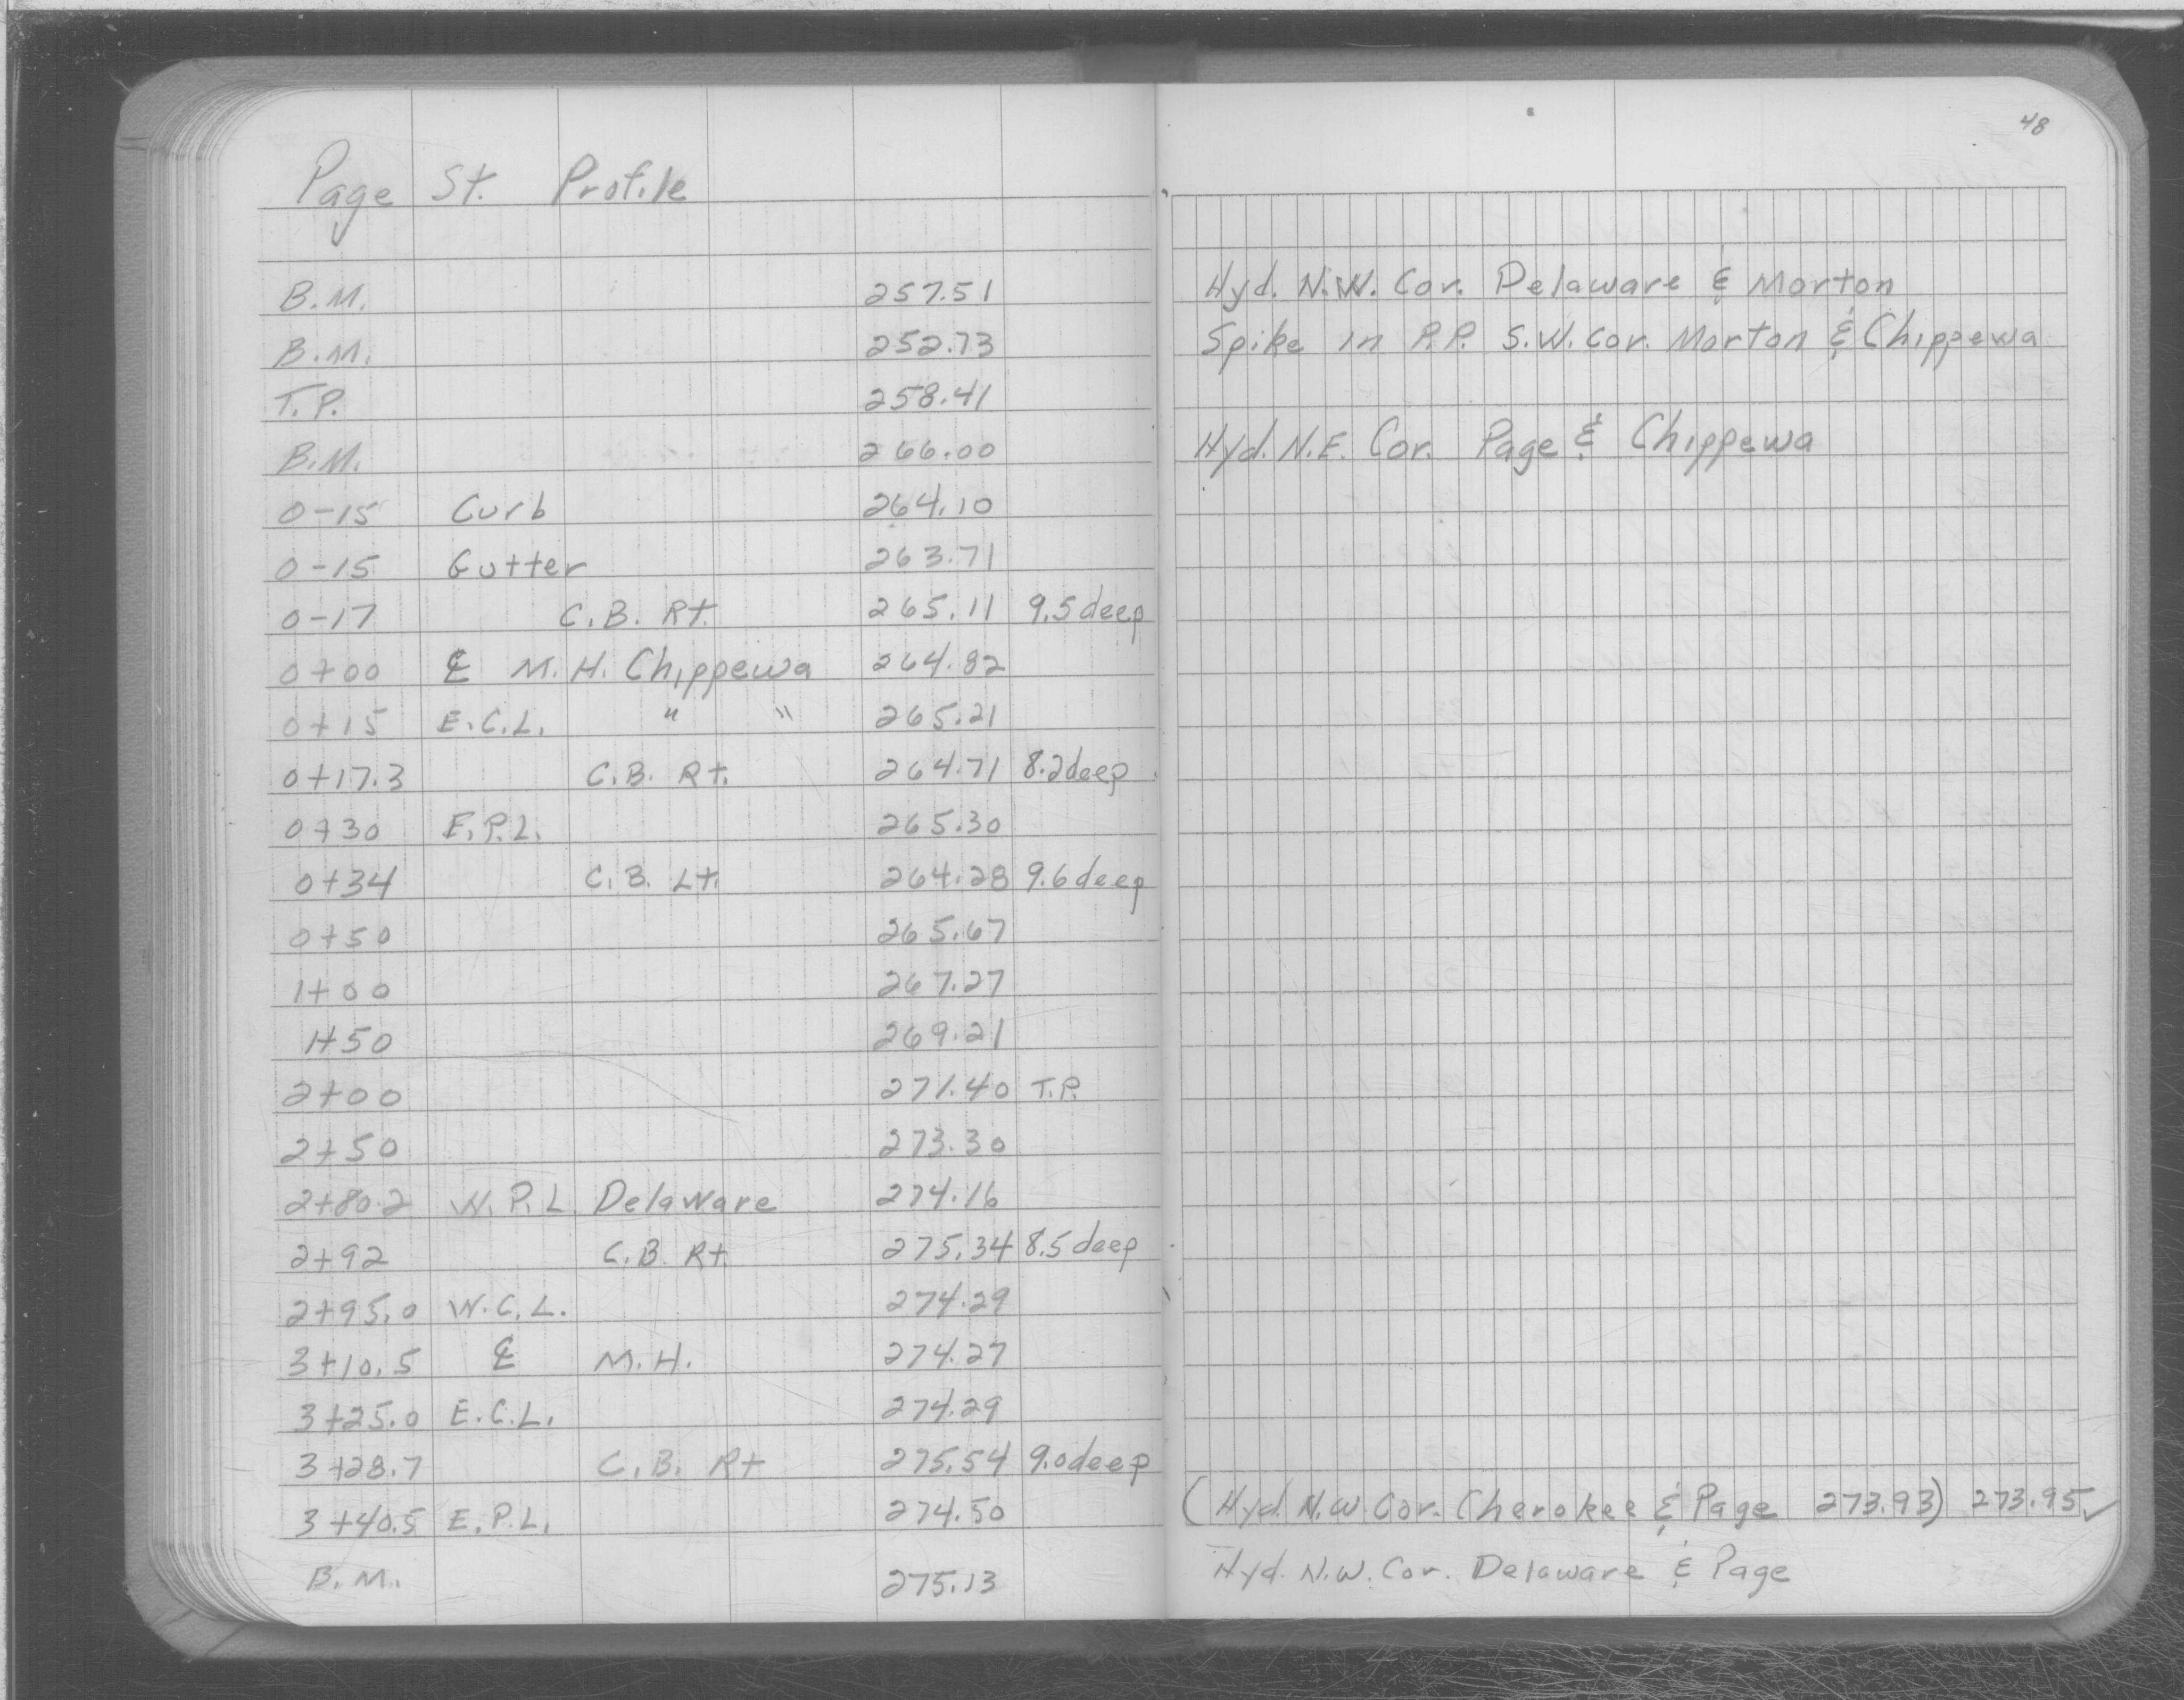 48
Page St. Profile
B.M. 257.51 Hyd. N.W. Cor. Delaware & Morton
B.M. 252.73 Spike in P.P. S.W. Cor. Morton & Chippewa
T.P. 258.41
B.M. 266.00 Hyd. N.E. Cor. Page & Chippewa
0-15 Curb 264.10
0-15 Gutter 263.71
0-17 C.B. Rt. 265.11 9.5 deep
0+00 ℄ M.H. Chippewa 264.82
0+15 E.C.L. " " 265.21
0+17.3 C.B. Rt. 264.71 8.2 deep
0+30 E.P.L. 265.30
0+34 C.B. Lt. 264.28 9.6 deep
0+50 265.67
1+00 267.27
1+50 269.21
2+00 271.40 T.P.
2+50 273.30
2+80.2 W.P.L Delaware 274.16
2+92 C.B. Rt. 275.34 8.5 deep
2+95.0 W.C.L. 274.29
3+10.5 ℄ M.H. 274.27
3+25.0 E.C.L. 274.29
3+28.7 C.B. Rt 275.54 9.0 deep
3+40.5 E.P.L. 274.50 (Hyd. N.W. Cor. Cherokee & Page 273.93) 273.95 ✓
B.M. 275.13 Hyd. N.W. Cor. Delaware & Page